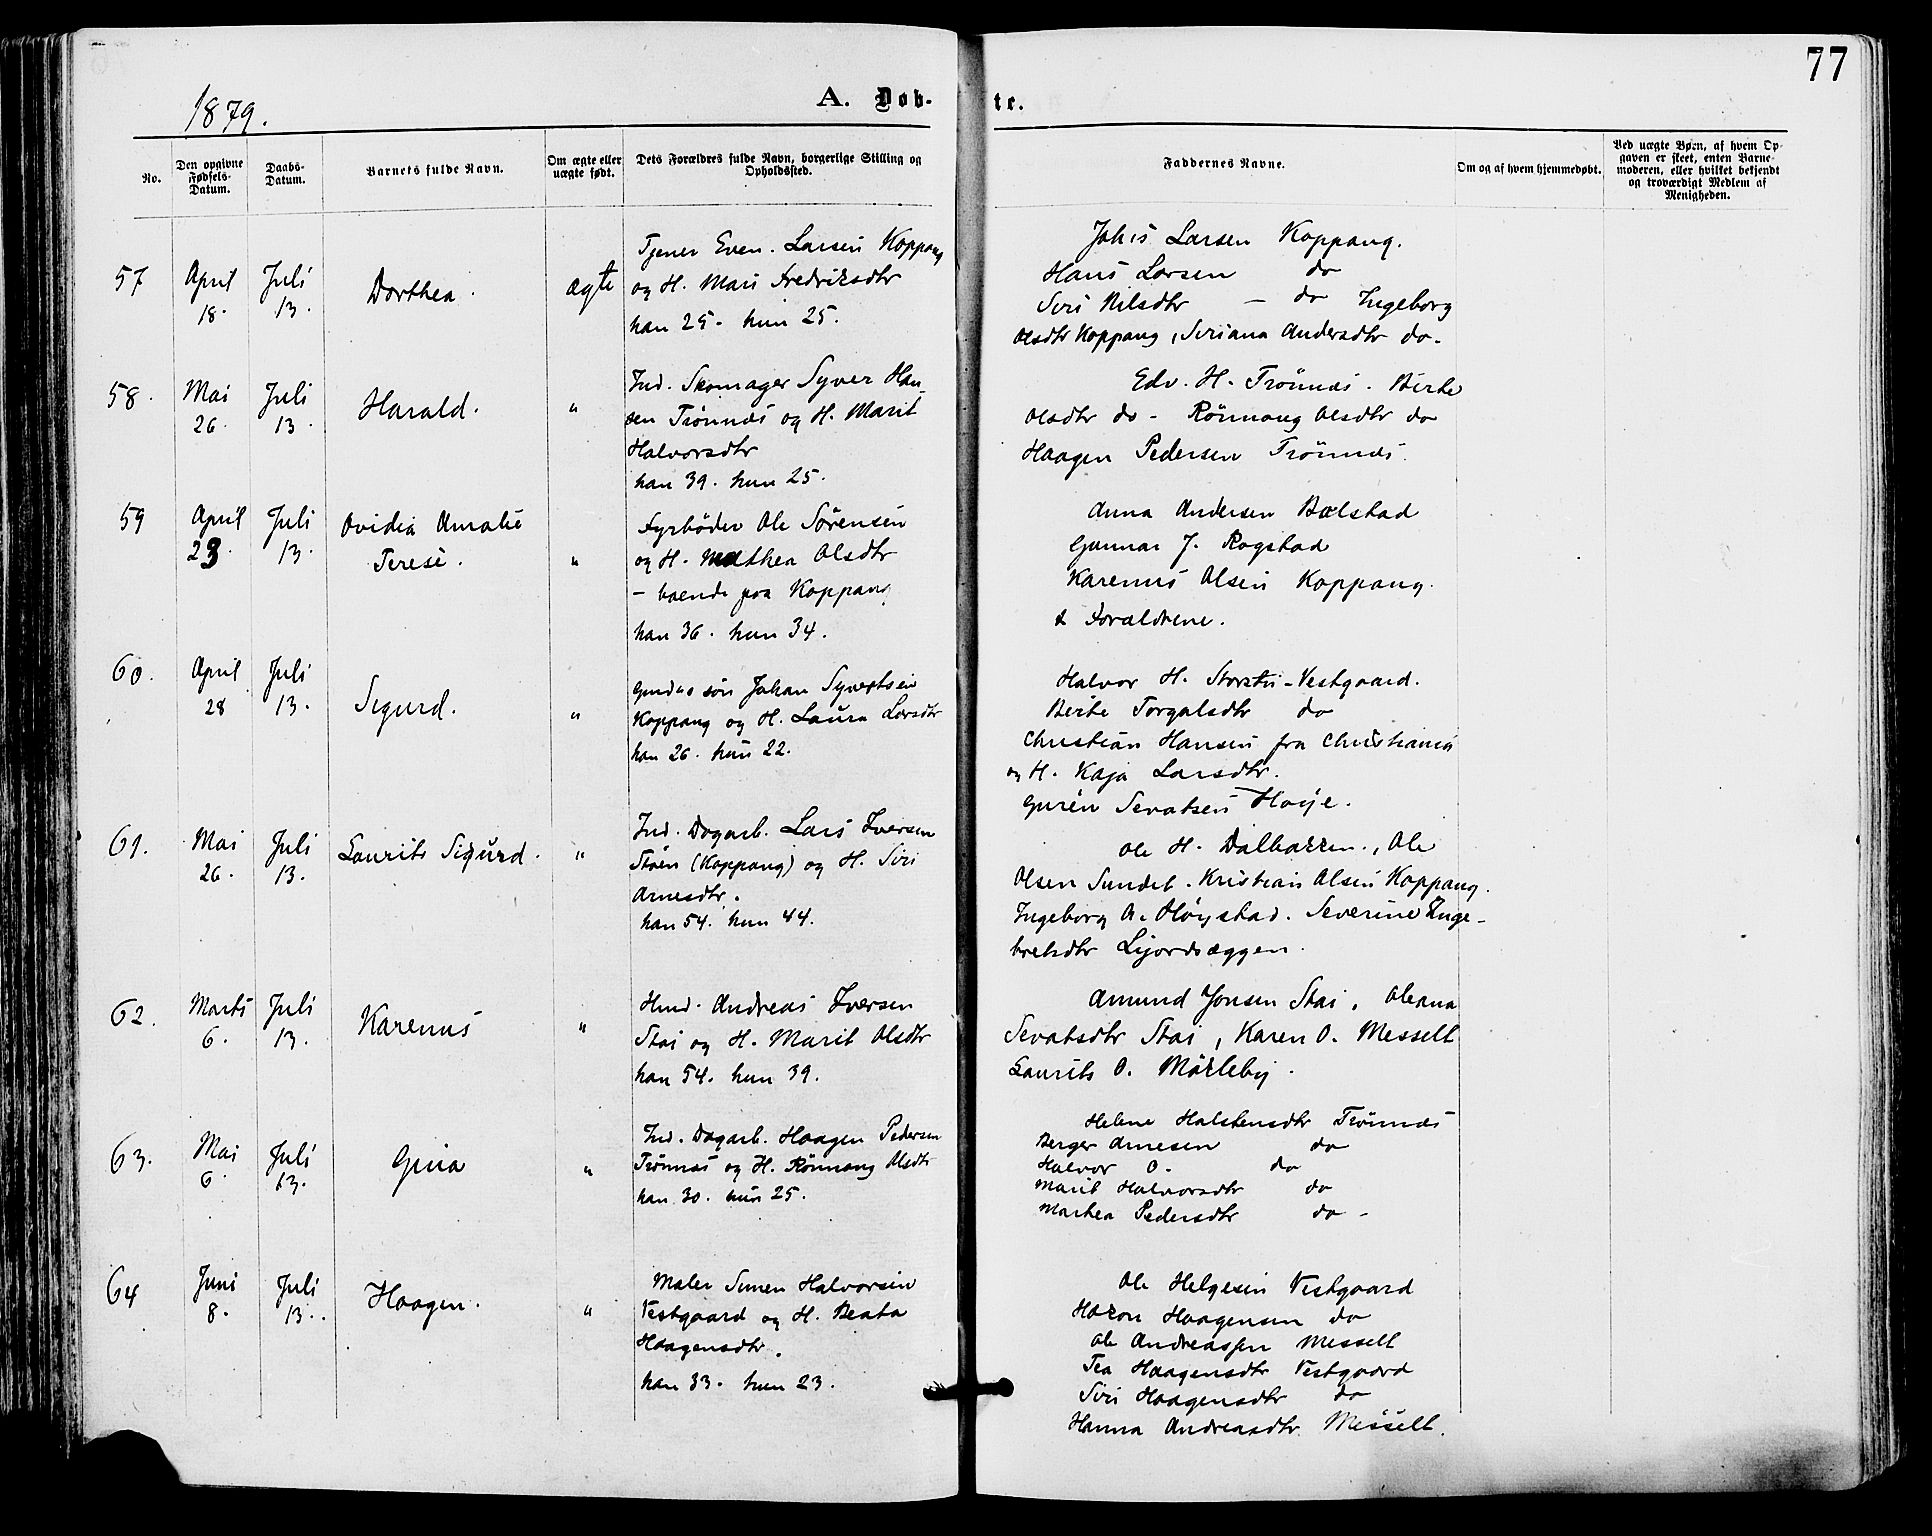 77
1879.
A. Døb-
te.
No.
Den opgivne Fødsels-Datum.
Daabs-Datum.
Barnets fulde Navn.
Om ægte eller uægte født.
Dets Forældres fulde Navn, borgerlige Stilling og Opholdssted.
Faddernes Navne.
Om og af hvem hjemmedøbt.
Ved uægte Børn, af hvem Op-
gaven er skeet, enten Barne-
moderen, eller hvilket bekjendt
og troværdigt Medlem af
Menigheden.
57
April
18.
Juli
13.
Dorthea.
ægte
Tjener Even. Larsen Koppang
og H. Mari Fredriksdtr
han 25. hun 25.
Johs Larsen Koppang.
Hans Larsen do
Siri Nilsdtr - do Ingeborg
Olsdtr Koppang, Seriana Andersdtr do.
58.
Mai
26.
Juli
13.
Harald.
"
Ind. Skomager Syver Han-
sen Trønnæs og H. Marit
Halvorsdtr
han 39. hun 25.
Edv. H. Trønnæs. Birte
Olsdtr do - Rønnaug Olsdtr do
Haagen Pedersen Trønnæs.
59
April
23.
Juli
13.
Ovidia Amalie
Terese.
"
Fyrbøder Ole Sørensen
og H. Mathea Olsdtr
- boende paa Koppang
han 36. hun 34.
Anna Andersen Bælstad
Gunnar J. Rogstad
Karenus Olsen Koppang.
& Forældrene.
60.
April
28
Juli
13.
Sigurd.
"
Gmdns søn Johan Syvertsen
Koppang og H. Laura Larsdtr
han 26. hun 22.
Halvor H. Storsti-Vestgaard.
Berte Torgalsdtr do
Christian Hansen fra Christiania
og H. Kaja Larsdtr.
Gurén Sevatsen Hovje.
61.
Mai
26.
Juli
13.
Laurits Sigurd.
"
Ind. Dagarb. Lars Iversen
Støen (Koppang) og H. Siri
Arnesdtr.
han 54. hun 44.
Ole H. Dalbakken., Ole
Olsen Sundet. Kristian Olsen Koppang.
Ingeborg A. Høystad. Severine Inge-
bretsdtr Ljordsæggen.
62.
Marts
6.
Juli
13.
Karenus
"
Hmd. Andreas Iversen
Stai og H. Marit Olsdtr
han 54. hun 39.
Amund Jonsen Stai, Oleana
Sevatsdtr Stai, Karen O. Messelt
Laurits O. Mørkeby.
63.
Mai
6.
Juli
13.
Gina
"
Ind. Dagarb. Haagen Pedersen
Trønnæs og H. Rønnaug Olsdtr
han 30. hun 25.
Helene Halstensdtr Trønnæs
Berger Arnesen do
Halvor O. do
Marit Halvorsdtr do
Marthea Pedersdtr do -
64
Juni
8.
Juli
13.
Haagen.
"
Maler Simen Halvorsen
Vestgaard og H. Beata
Haagensdtr.
han 33. hun 23.
Ole Helgesen Vestgaard
Hakon Haagensen do
Ole Andreassen Messelt
Tea Haagensdtr Vestgaard
Siri Haagensdtr do
Hanna Andreasdtr. Messelt.